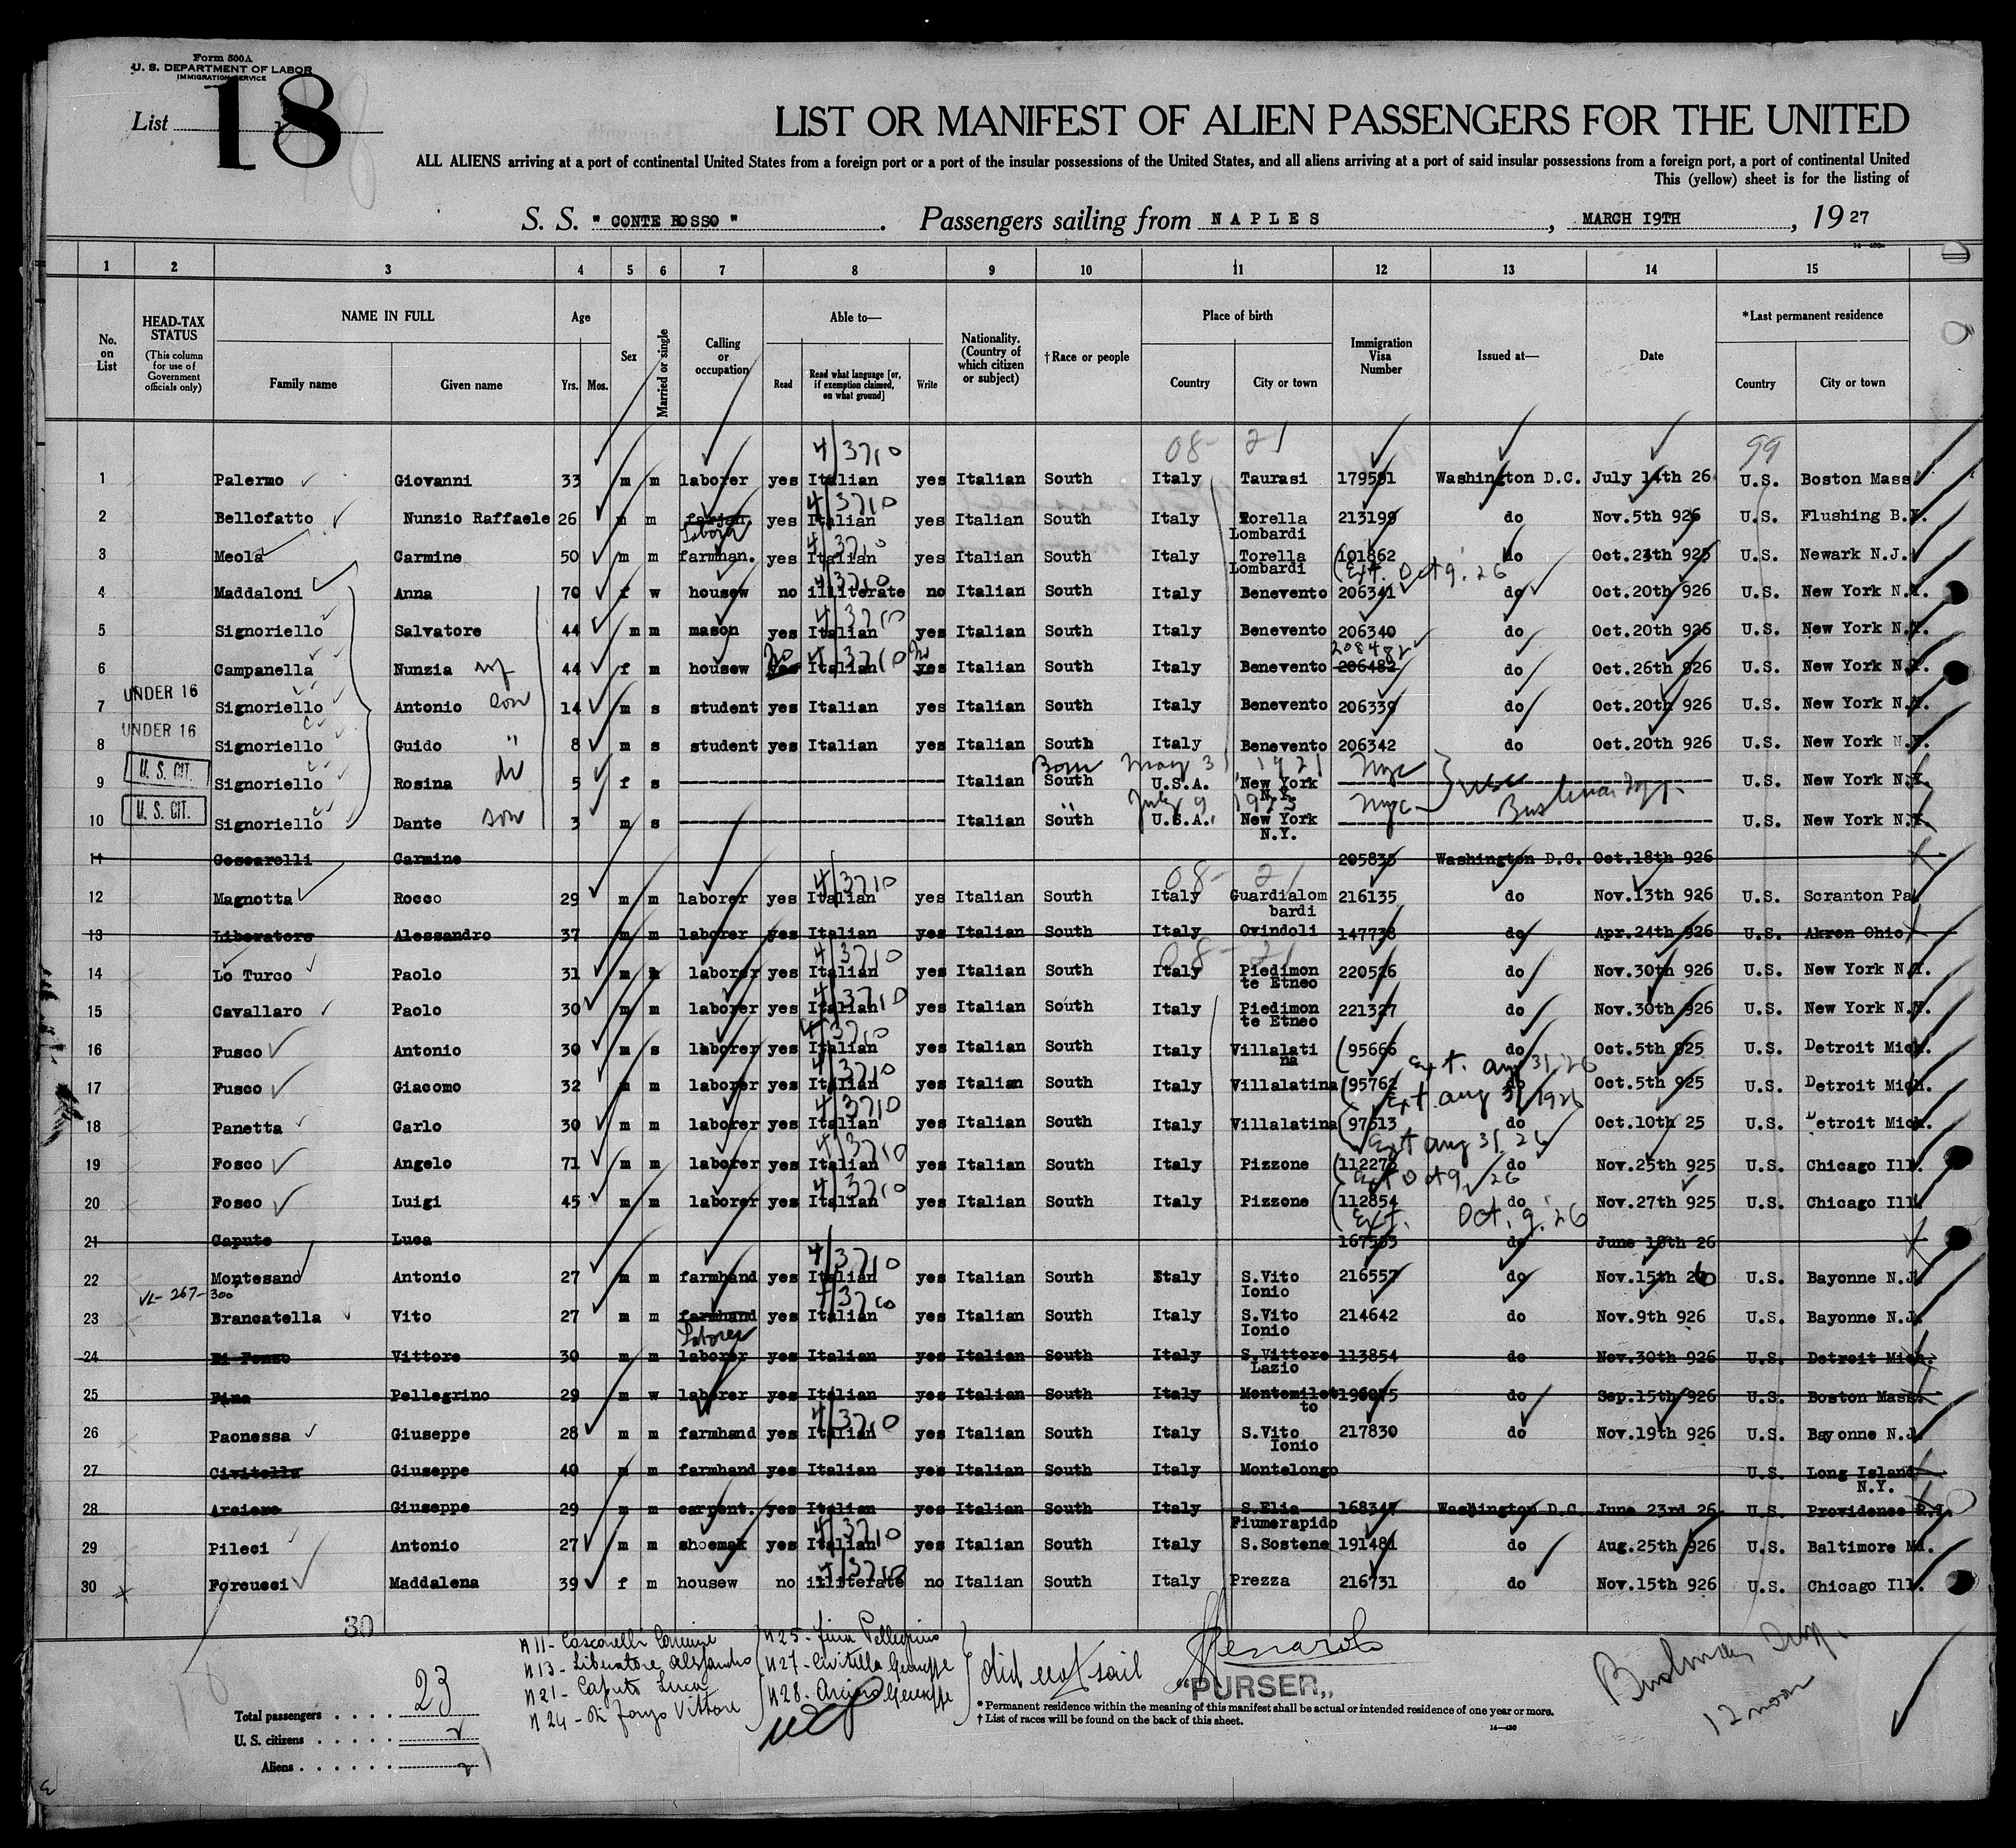 Form 500A
U. S. DEPARTMENT OF LABOR
IMMIGRATION SERVICE
List 18
LIST OR MANIFEST OF ALIEN PASSENGERS FOR THE UNITED
ALL ALIENS arriving at a port of continental United States from a foreign port or a port of the insular possessions of the United States, and all aliens arriving at a port of said insular possessions from a foreign port, a port of continental United
This (yellow) sheet is for the listing of
S. S. " CONTE ROSSO ". Passengers sailing from NAPLES, MARCH 19TH, 1927
1 2 3 4 5 6 7 8 9 10 11 12 13 14 15
No. on List
HEAD-TAX STATUS (This column for use of Government officials only)
NAME IN FULL Family name Given name
Age Yrs. Mos.
Sex
Married or single
Calling or occupation
Able to— Read Read what language [or, if exemption claimed, on what ground] Write
Nationality. (Country of which citizen or subject)
†Race or people
Place of birth Country City or town
Immigration Visa Number
Issued at—
Date
*Last permanent residence Country City or town
08- 21 99
4/3710
1 Palermo Giovanni 33 m m laborer yes Italian yes Italian South Italy Taurasi 179591 Washington D.C. July 14th 26 U.S. Boston Mass
4/3710
2 Bellofatto Nunzio Raffaele 26 m m farjan. yes Italian yes Italian South Italy Torella Lombardi 213199 do Nov.5th 926 U.S. Flushing B.
Labora
4/3710
3 Meola Carmine 50 m m farmhan. yes Italian yes Italian South Italy Torella Lombardi 101862 do Oct.24th 925 U.S. Newark N.J.
(Ext. Oct 9. 26
4/3710
4 Maddaloni Anna 70 f w housew no illiterate no Italian South Italy Benevento 206341 do Oct.20th 926 U.S. New York N.Y.
4/3710
5 Signoriello Salvatore 44 m m mason yes Italian yes Italian South Italy Benevento 206340 do Oct.20th 926 U.S. New York N.Y.
no 4/3710 no 208482
6 Campanella Nunzia wf 44 f m housew yes Italian yes Italian South Italy Benevento 206482 do Oct.26th 926 U.S. New York N.Y.
UNDER 16
7 Signoriello Antonio son 14 m s student yes Italian yes Italian South Italy Benevento 206339 do Oct.20th 926 U.S. New York N.Y.
UNDER 16
8 Signoriello Guido " 8 m s student yes Italian yes Italian South Italy Benevento 206342 do Oct.20th 926 U.S. New York N.Y.
U. S. CIT.
Born May 31, 1921 Nyc
9 Signoriello Rosina 5 f s Italian South U.S.A. New York N.Y. U.S. New York N.Y.
U. S. CIT.
July 9, 1923 Nyc } USC
10 Signoriello Dante son 3 m s Italian South U.S.A. New York N.Y. U.S. New York N.Y.
11 Coscarelli Carmine 205835 Washington D.C. Oct.18th 926
08- 21
4/3710
12 Magnotta Rocco 29 m m laborer yes Italian yes Italian South Italy Guardialom bardi 216135 do Nov.13th 926 U.S. Scranton Pa
13 Liberatore Alessandro 37 m m laborer yes Italian yes Italian South Italy Ovindoli 147738 do Apr.24th 926 U.S. Akron Ohio
08- 21
4/3710
14 Lo Turco Paolo 31 m laborer yes Italian yes Italian South Italy Piedimon te Etneo 220526 do Nov.30th 926 U.S. New York N.Y.
4/3710
15 Cavallaro Paolo 30 m m laborer yes Italian yes Italian South Italy Piedimon te Etneo 221327 do Nov.30th 926 U.S. New York N.Y.
4/3710
16 Fusco Antonio 30 m s laborer yes Italian yes Italian South Italy Villalati na (95666 do Oct.5th 925 U.S. Detroit Mich.
Ext. Aug 31, 26
4/3710
17 Fusco Giacomo 32 m m laborer yes Italian yes Italian South Italy Villalatina (95762 do Oct.5th 925 U.S. Detroit Mich.
Ext. Aug 31 1926
4/3710
18 Panetta Carlo 30 m m laborer yes Italian yes Italian South Italy Villalatina (97513 do Oct.10th 25 U.S. Detroit Mich.
Ext Aug 31, 26
4/3710
19 Fosco Angelo 71 m m laborer yes Italian yes Italian South Italy Pizzone (112273 do Nov.25th 925 U.S. Chicago Ill.
Ext Oct 9, 26
4/3710
20 Fosco Luigi 45 m m laborer yes Italian yes Italian South Italy Pizzone (112854 do Nov.27th 925 U.S. Chicago Ill
Ext. Oct. 9. '26
21 Caputo Luca 167583 do June 18th 26
4/3710
22 Montesano Antonio 27 m m farmhand yes Italian yes Italian South Italy S.Vito Ionio 216557 do Nov.15th 26 U.S. Bayonne N.J.
VL-267-300
4/3710
23 Brancatella Vito 27 m m farmhand yes Italian yes Italian South Italy S.Vito Ionio 214642 do Nov.9th 926 U.S. Bayonne N.J.
Laborer
24 Di Fonzo Vittore 30 m m laborer yes Italian yes Italian South Italy S.Vittore Lazio 113854 do Nov.30th 926 U.S. Detroit Mich.
25 Fina Pellegrino 29 m w laborer yes Italian yes Italian South Italy Montemilet to 196075 do Sep.15th 926 U.S. Boston Mass.
4/3710
26 Paonessa Giuseppe 28 m m farmhand yes Italian yes Italian South Italy S.Vito Ionio 217830 do Nov.19th 926 U.S. Bayonne N.J.
27 Civitella Giuseppe 40 m m farmhand yes Italian yes Italian South Italy Montelongo U.S. Long Island N.Y.
28 Arciero Giuseppe 29 m m carpent. yes Italian yes Italian South Italy S.Elia Fiumerapido 168347 Washington D.C. June 23rd 26 U.S. Providence R.I.
4/3710
29 Pileci Antonio 27 m m shoemak yes Italian yes Italian South Italy S.Sostene 191481 do Aug.25th 926 U.S. Baltimore Md.
4/3710
30 Forcucci Maddalena 39 f m housew no illiterate no Italian South Italy Prezza 216731 do Nov.15th 926 U.S. Chicago Ill.
30
N 11- Coscarelli Carmine
N 13- Liberatore Alessandro
N 21- Caputo Luca
N 24- Di Fonzo Vittore
N 25- Fina Pellegrino
N 27- Civitella Giuseppe
N 28- Arciero Giuseppe
did not sail
"PURSER"
12 noon
Total passengers . . . . 23
U. S. citizens . . . . . 2
Aliens . . . . . . 21
* Permanent residence within the meaning of this manifest shall be actual or intended residence of one year or more.
† List of races will be found on the back of this sheet.
14—430